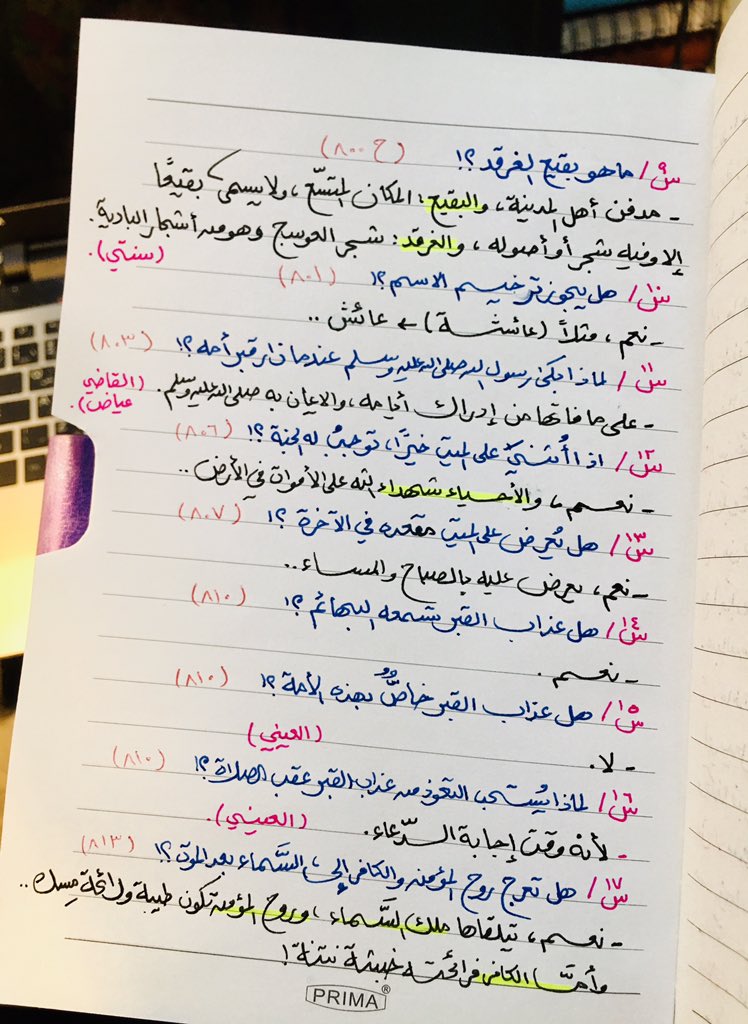 س٩/ ما هو بقيع الغرقد؟! (ح ٨٠٠)
- مدفن أهل المدينة، والبقيع: المكان المتسّع، ولا يسمى بقيعًا
إلا وفيه شجر أو أصوله، والغرقد: شجر العوسج وهو من أشجار البادية.
(سنتي).
س١٠/ هل يجوز ترخيم الاسم؟! (٨٠١)
- نعم، مثلاً (عائشة) ← عائش..
س١١/ لماذا بكى رسول الله صلى الله عليه وسلم عندما زار قبر أمه؟! (٨٠٣)
- على ما فاتها من إدراك أيامه، والإيمان به صلى الله عليه وسلم. (القاضي عياض).
س١٢/ اذا أُثنيَ على الميت خيرًا، توجبُ له الجنة؟! (٨٠٦)
- نعم، والأحياء شهداء الله على الأموات في الأرض..
س١٣/ هل يُعرض على الميّت مقعده في الآخرة؟! (٨٠٧)
- نعم، يعرض عليه بالصباح والمساء..
س١٤/ هل عذاب القبر تسمعه البهائم؟! (٨١٠)
- نعم.
س١٥/ هل عذاب القبر خاصٌّ بهذه الأمة؟! (٨١٠)
- لا. (العيني)
س١٦/ لماذا يُستحب التعوذ من عذاب القبر عقب الصلاة؟! (٨١٠)
- لأنه وقت إجابة الدّعاء. (العيني).
س١٧/ هل تعرج روح المؤمن والكافر إلى السَّماء بعد الموت؟! (٨١٣)
- نعم، تيلقاها ملك السَّماء، وروح المؤمن تكون طيبة ورائحة مسك..
وأمَّا الكافر فرائحته خبيثة نتنة!
PRIMA®